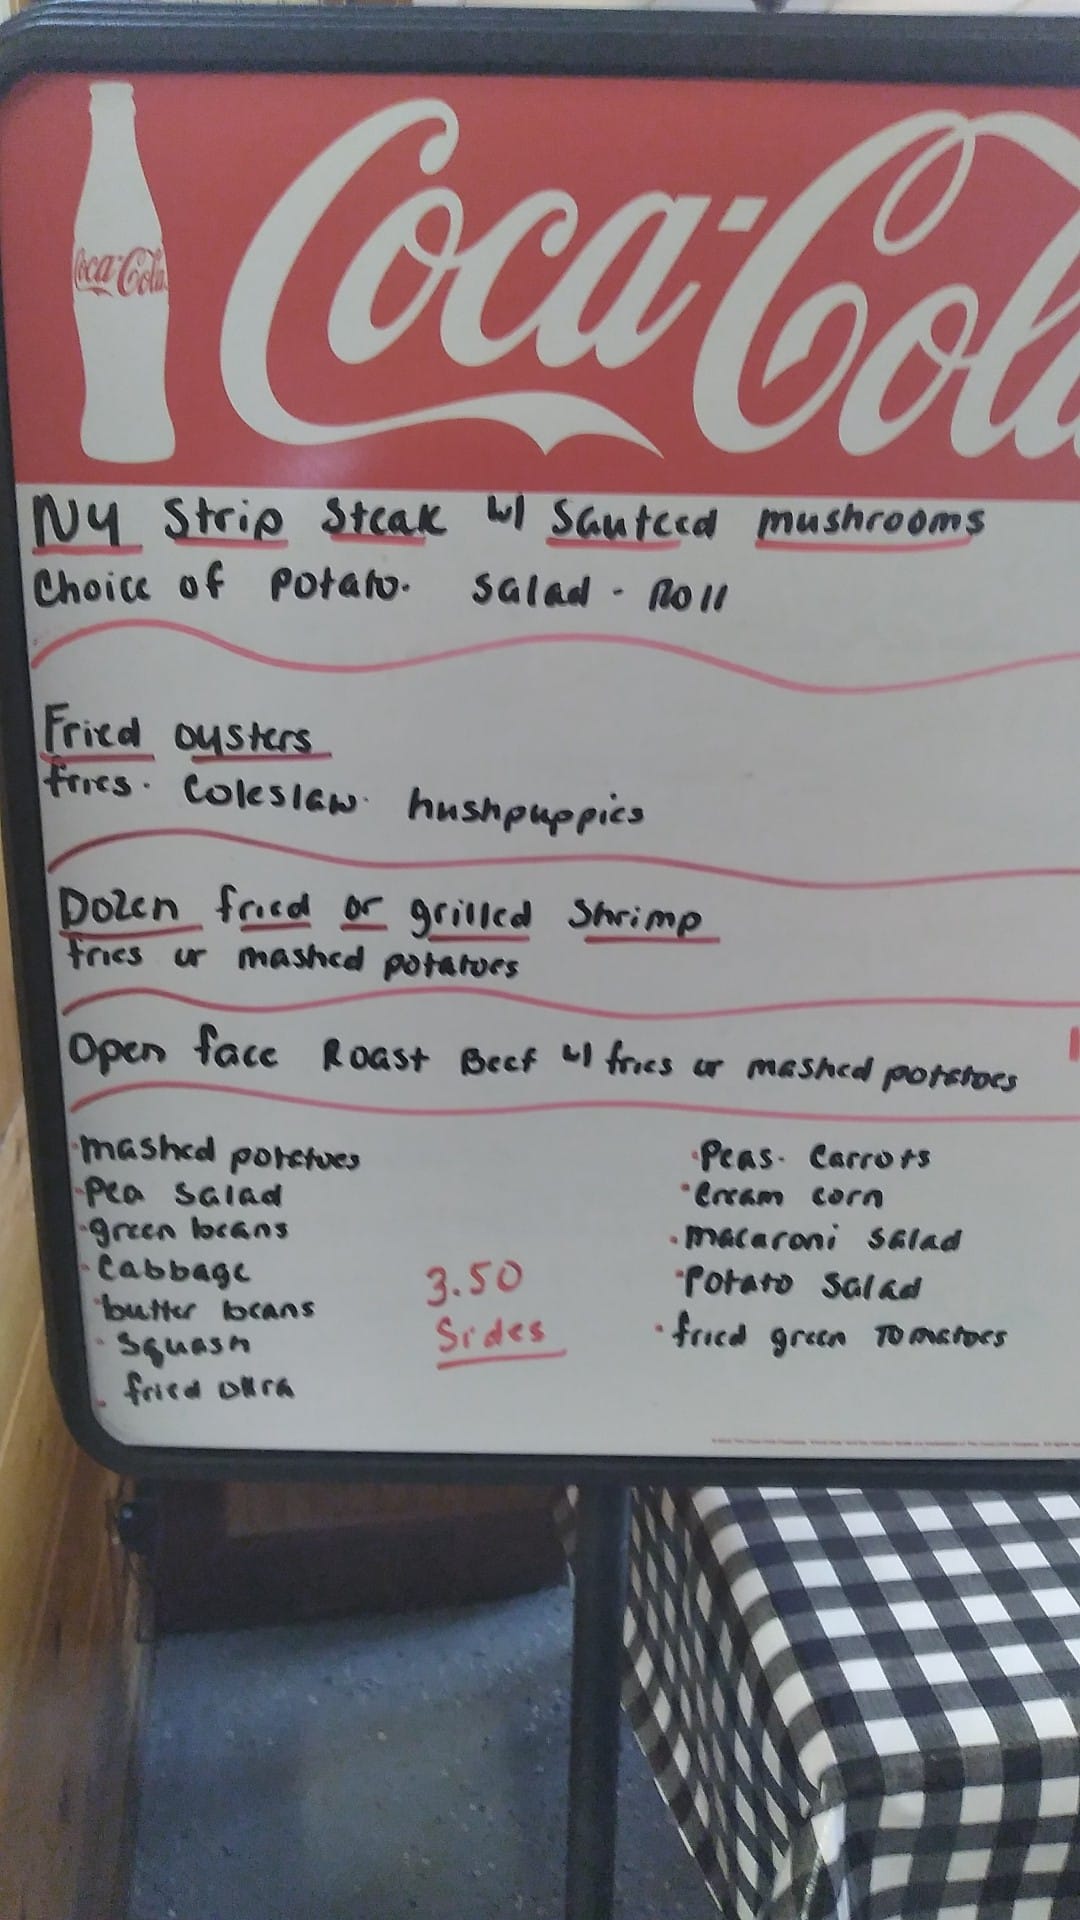 Coca-Cola
Coca-Col
NY Strip Steak w/ Sauteed mushrooms
Choice of potato. Salad - Roll
Fried oysters
fries. Coleslaw. hushpuppies
Dozen fried or grilled Shrimp
fries or mashed potatoes
Open face Roast Beef w/ fries or mashed potatoes
·mashed potatoes
·Pea Salad
·green beans
·Cabbage
·butter beans
·Squash
·fried okra
3.50
Sides
·Peas. Carrots
·Cream corn
·macaroni Salad
·Potato Salad
·fried green Tomatoes